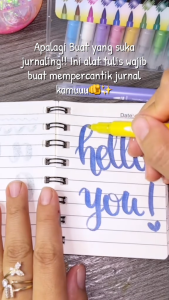 Apalagi Buat yang suka
jurnaling!! Ini alat tulis wajib
buat mempercantik jurnal
kamuuu🫶✨
Date
hello
you!